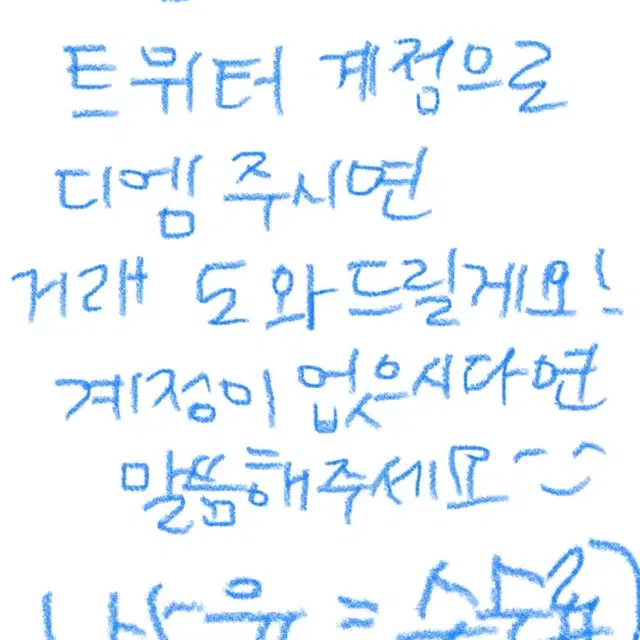 트위터 계정으로
디엠 주시면
거래 도와드릴게요!
계정이 없으시다면
말씀해주세요 ^‿^